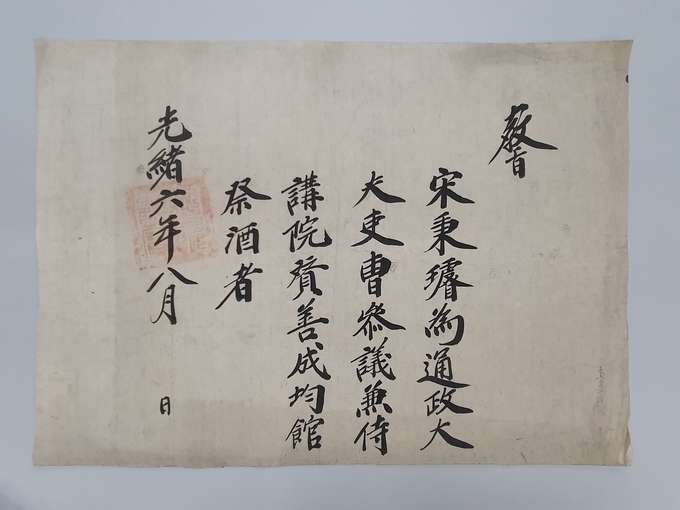 敎旨
宋秉璿爲通政大
夫吏曹參議兼侍
講院賛善成均館
祭酒者
光緖六年八月 日